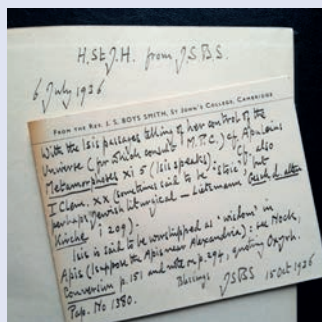 H.StJ.H. from J.S.B.S.
6 July 1936
FROM THE REV. J. S. BOYS SMITH, ST JOHN'S COLLEGE, CAMBRIDGE
With the Isis passages telling of her control of the
Universe (for which consult M.P.C.) cf Apuleius
Metamorphoses xi 5 (Isis speaks): Cf. also
I Clem. XX (sometimes said to be 'Stoic', but
perhaps Jewish liturgical – Lietzmann Gesch. d. alten
Kirche i 209).
Isis is said to be worshipped as 'wisdom' in
Apis (I suppose the Apis near Alexandria): see Nock,
Conversion p. 151 and note on p. 294, quoting Oxyrh.
Pap. No 1380.
Blessings JSBS 15 Oct 1936